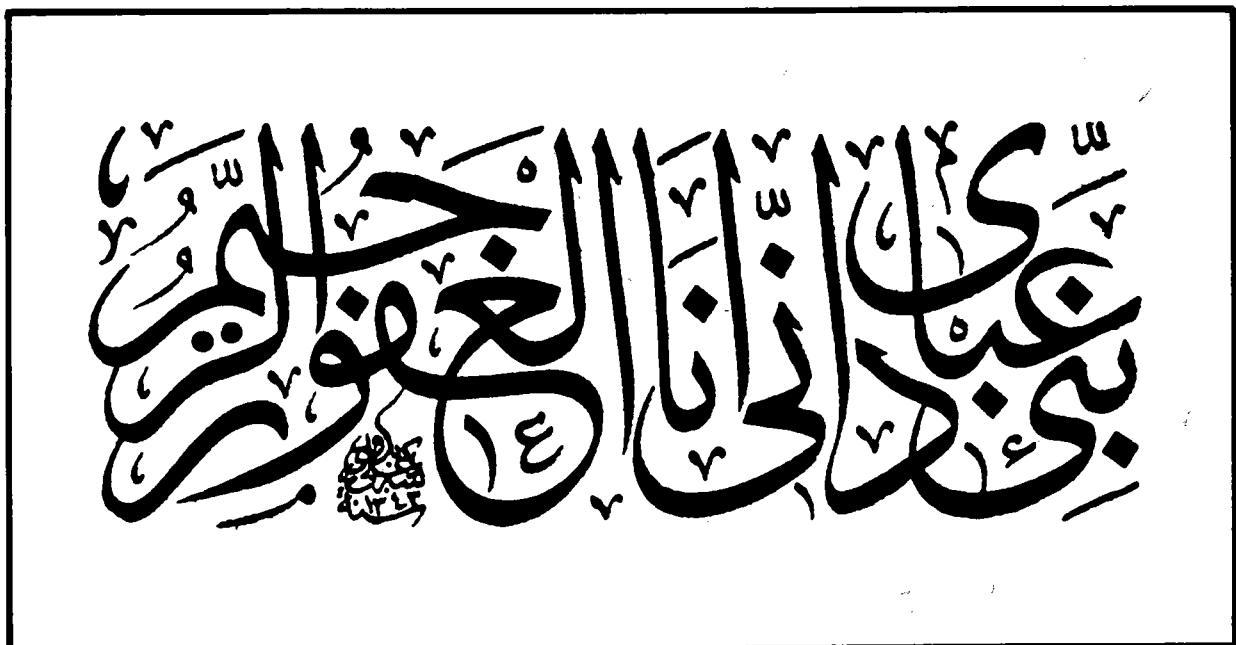 نَبِّئْ عِبَادِي أَنِّي أَنَا الْغَفُورُ الرَّحِيمُ
١٣٤٣